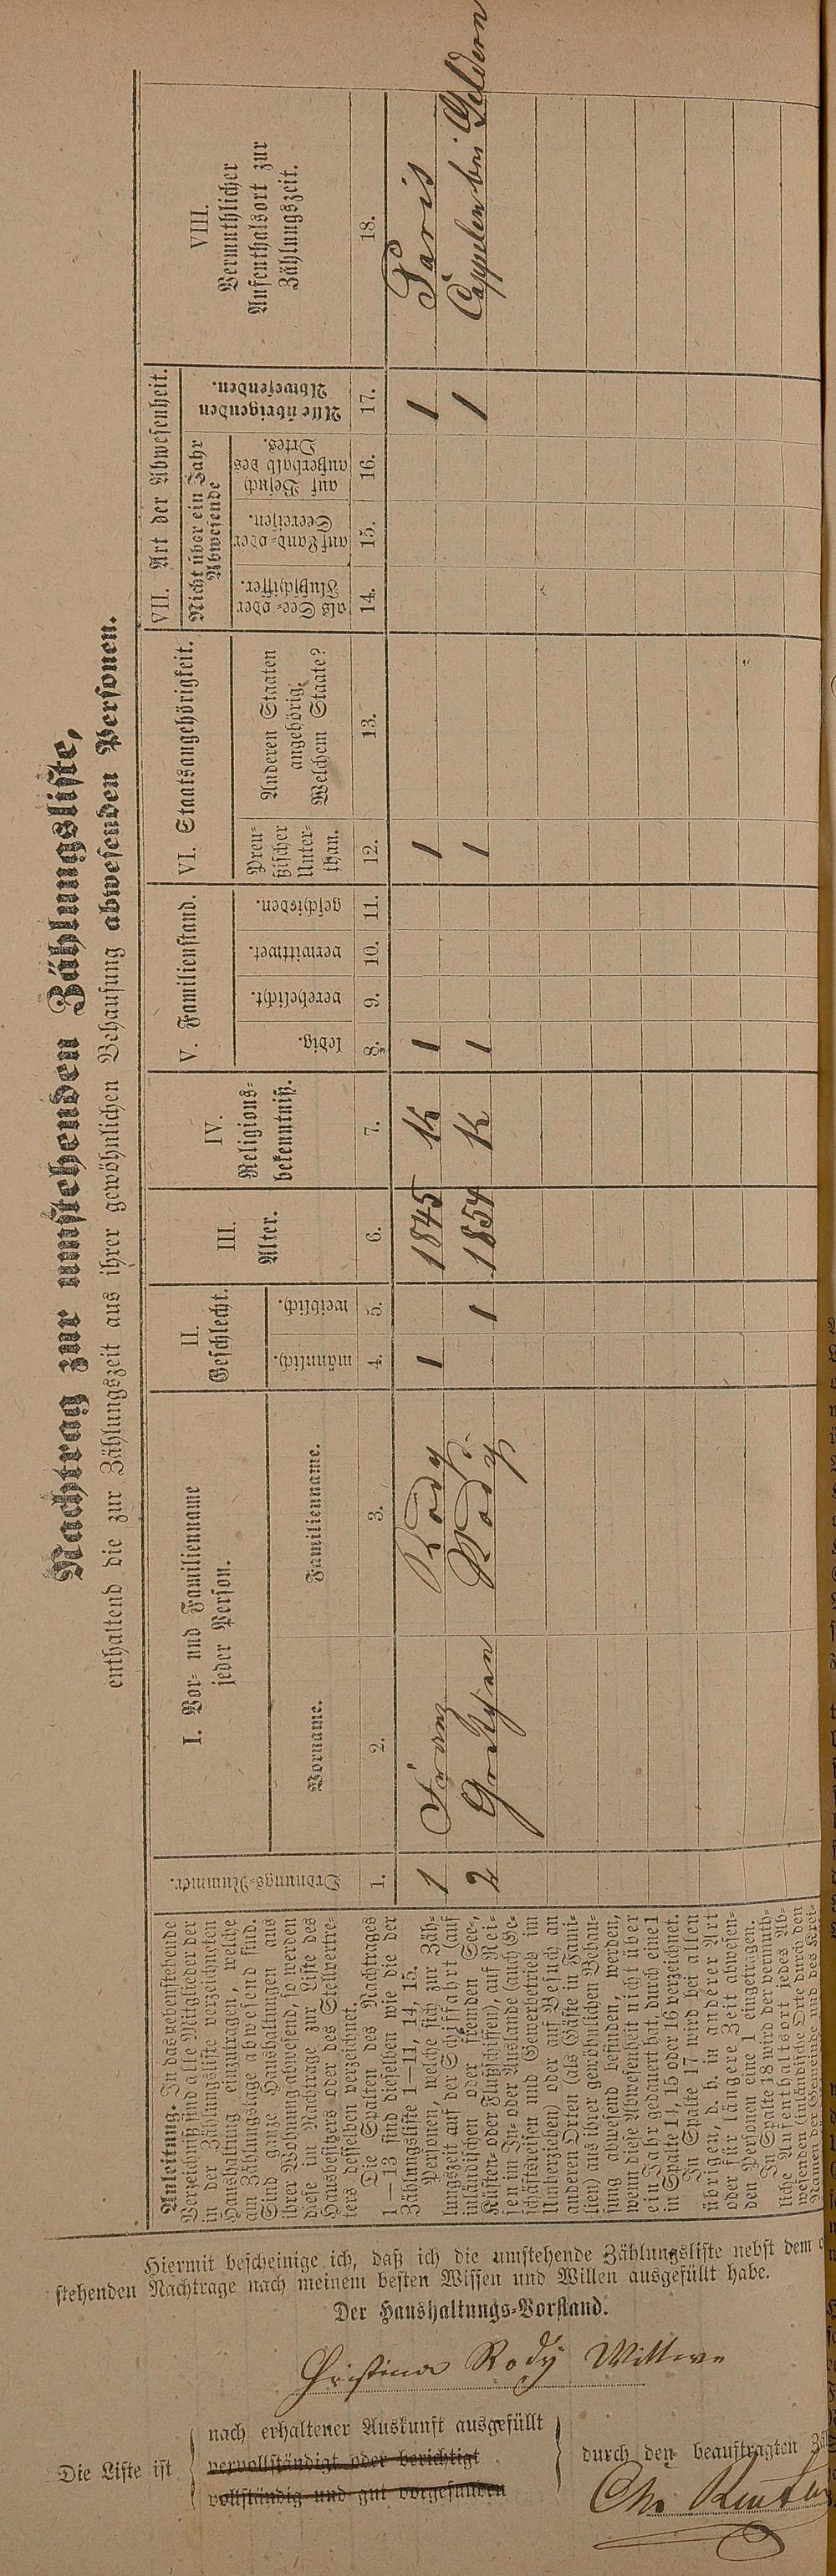 Nachtrag zur umstehenden Zählungsliste,
enthaltend die zur Zählungszeit aus ihrer gewöhnlichen Behausung abwesenden Personen.
Anleitung. In das nebenstehende
Verzeichniß sind alle Mitglieder der
in der Zählungsliste verzeichneten
Haushaltung einzutragen, welche
am Zählungstage abwesend sind.
Sind ganze Haushaltungen aus
ihrer Wohnung abwesend, so werden
diese im Nachtrage zur Liste des
Hausbesitzers oder des Stellvertre-
ters desselben verzeichnet.
Die Spalten des Nachtrages
1—13 sind dieselben wie die der
Zählungsliste 1—11, 14, 15.
Personen, welche sich zur Zäh-
lungszeit auf der Schifffahrt (auf
inländischen oder fremden See-,
Küsten- oder Flußschiffen), auf Rei-
sen im In- oder Auslande (auch Ge-
schäftsreisen und Gewerbebetrieb im
Umherziehen) oder auf Besuch an
anderen Orten (als Gäste in Fami-
lien) aus ihrer gewöhnlichen Behau-
sung abwesend befinden, werden,
wenn diese Abwesenheit nicht über
ein Jahr gedauert hat, durch eine 1
in Spalte 14, 15 oder 16 verzeichnet.
In Spalte 17 wird bei allen
übrigen, d. h. in anderer Art
oder für längere Zeit abwesen-
den Personen eine 1 eingetragen.
In Spalte 18 wird der vermuth-
liche Aufenthaltsort jedes Ab-
wesenden (inländische Orte durch den
Namen der Gemeinde und des Krei-
Ordnungs-Nummer.
I. Vor- und Familienname
jeder Person.
Vorname.
Familienname.
II.
Geschlecht.
männlich.
weiblich.
III.
Alter.
IV.
Religions-
bekenntniß.
V. Familienstand.
ledig.
verehelicht.
verwittwet.
geschieden.
VI. Staatsangehörigkeit.
Preu-
ßischer
Unter-
than.
Anderen Staaten
angehörig.
Welchem Staate?
VII. Art der Abwesenheit.
Nicht über ein Jahr
Abwesende
als See- oder
Flußschiffer.
auf Land- oder
Seereisen.
auf Besuch
außerhalb des
Ortes.
Alle übrigenden
Abwesenden.
VIII.
Vermuthlicher
Aufenthalsort zur
Zählungszeit.
1. 2. 3. 4. 5. 6. 7. 8. 9. 10. 11. 12. 13. 14. 15. 16. 17. 18.
1 Franz Rody 1 1845 K 1 1 1 Paris
2 Rody 1 1854 K 1 1 1 Cappelen bei Geldern
Hiermit bescheinige ich, daß ich die umstehende Zählungsliste nebst dem
stehenden Nachtrage nach meinem besten Wissen und Willen ausgefüllt habe.
Der Haushaltungs-Vorstand.
Christina Rody Wittwe
Die Liste ist
nach erhaltener Auskunft ausgefüllt
vervollständigt oder berichtigt
vollständig und gut vorgefunden
durch den beauftragten